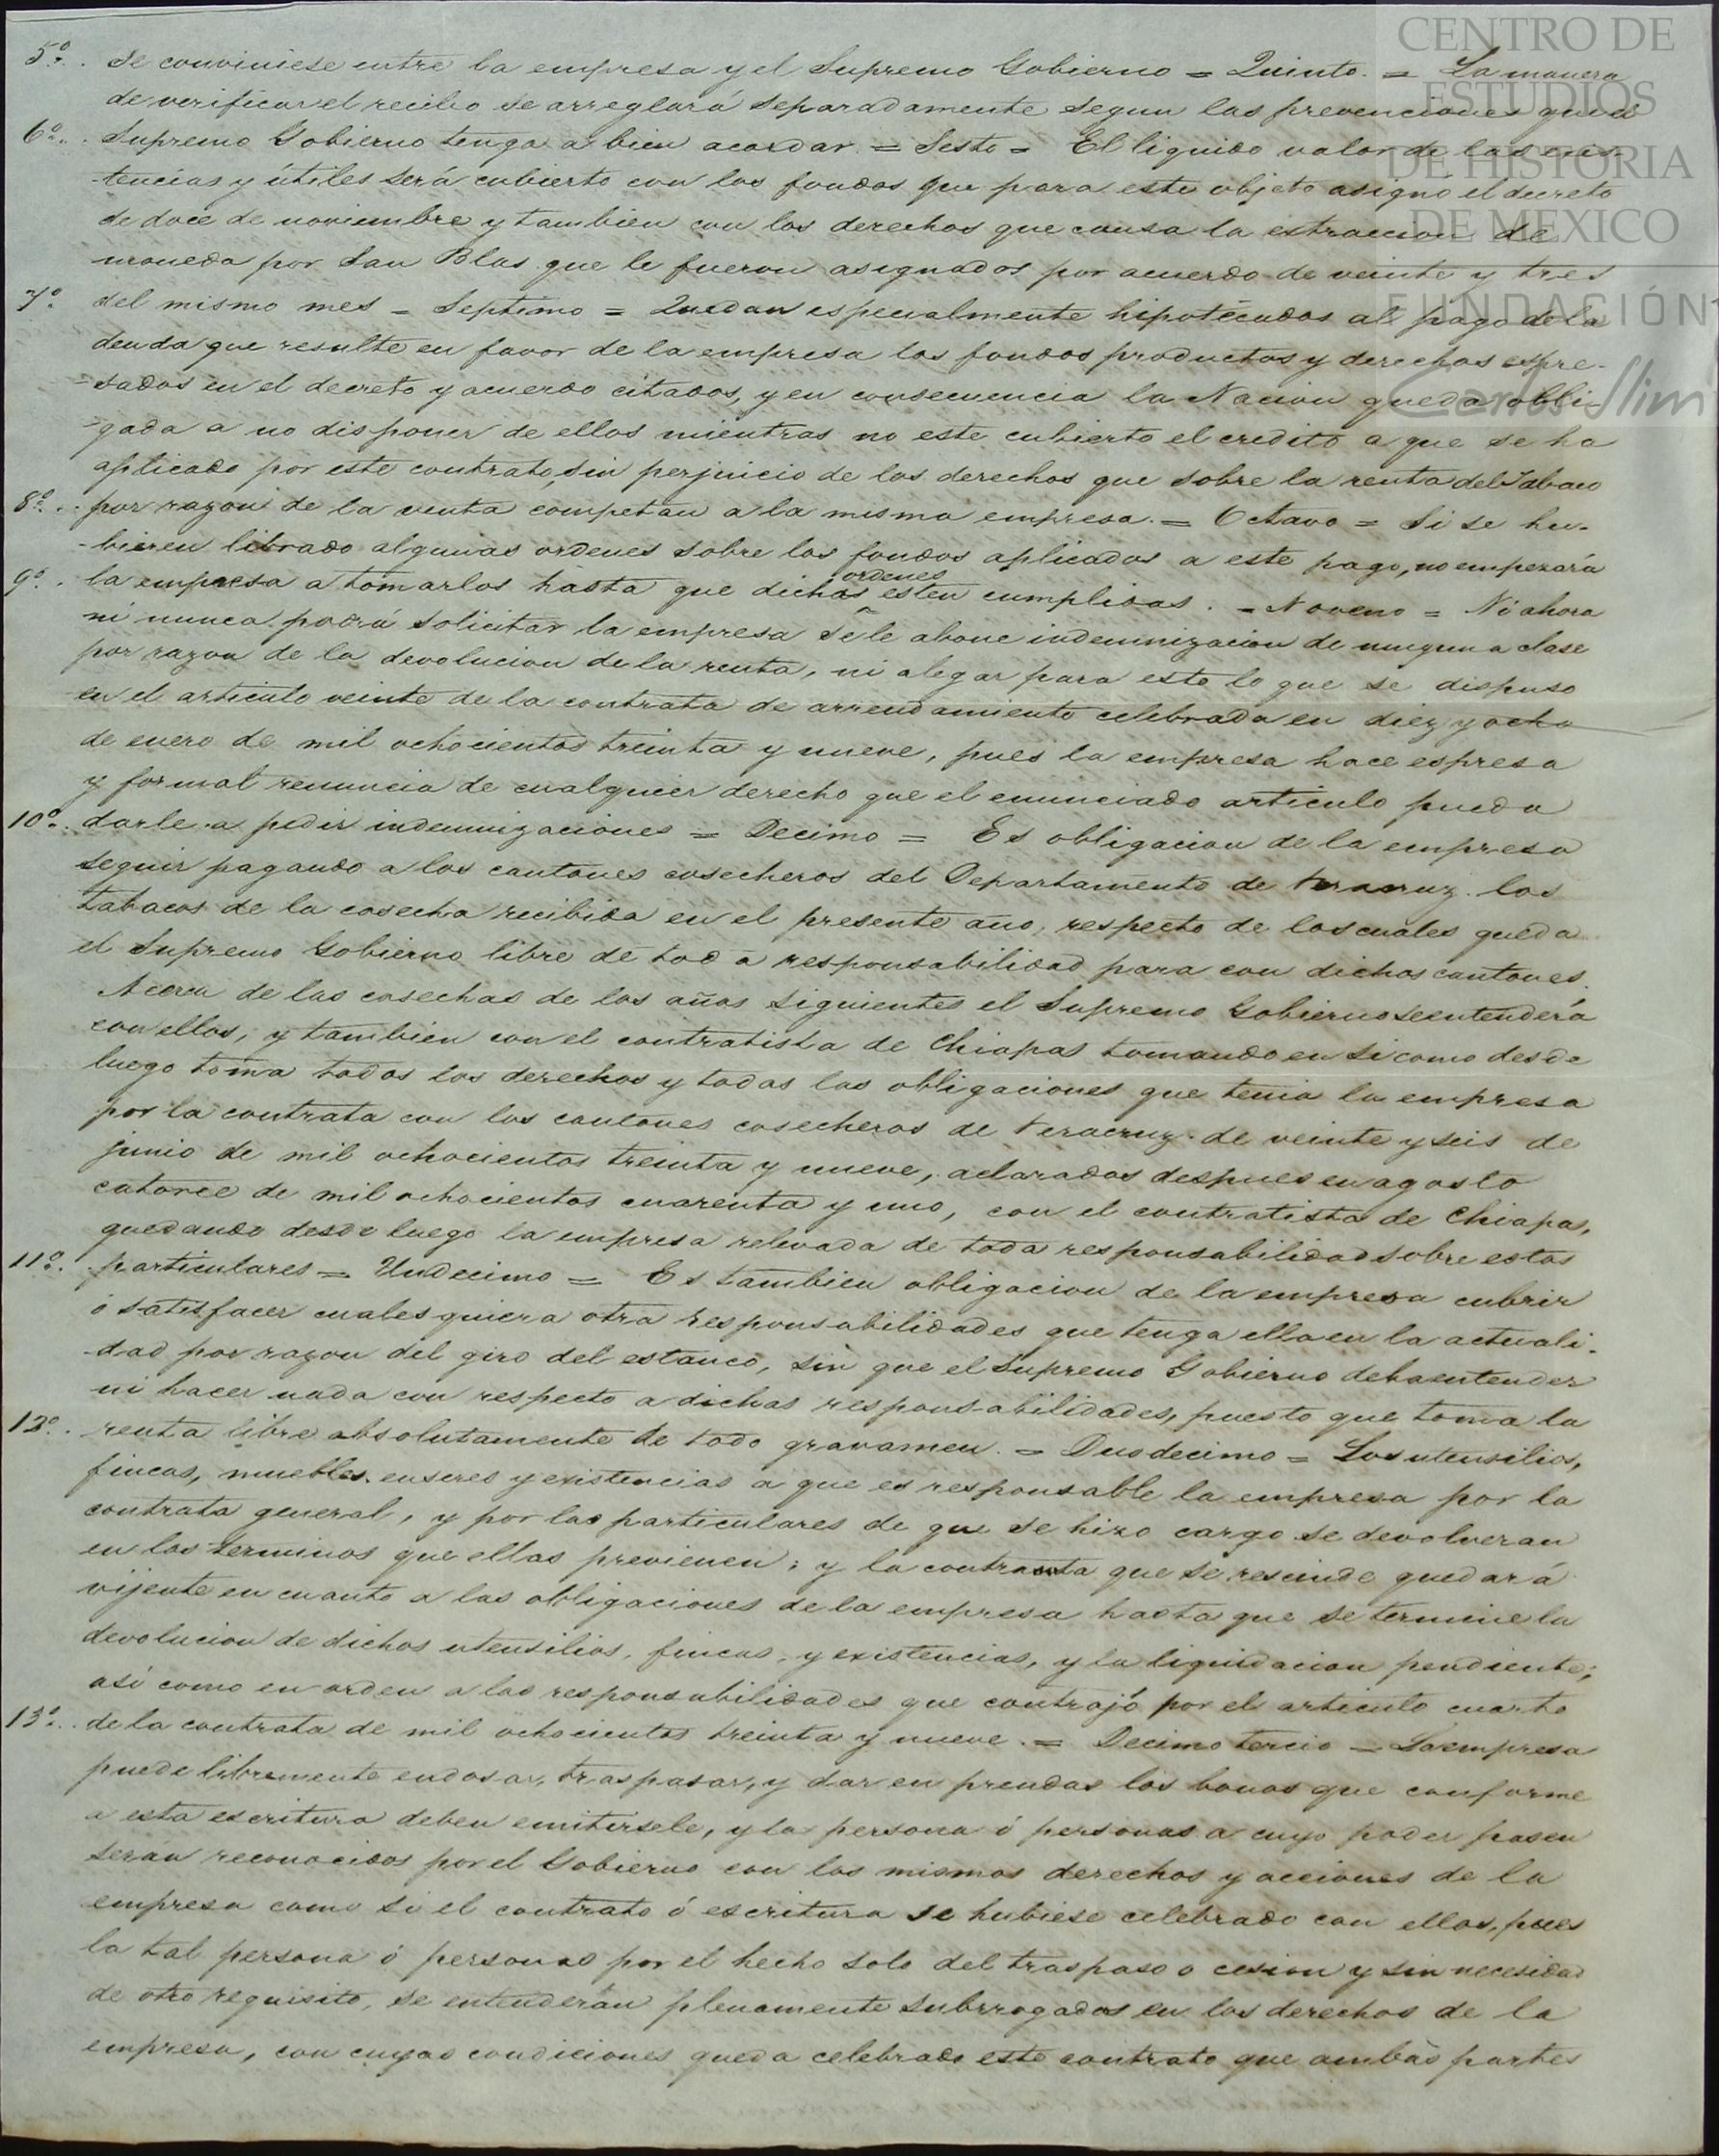 CENTRO DE
ESTUDIOS
DE HISTORIA
DE MEXICO
FUNDACIÓN
Carlos Slim
5º. . se conviniese entre la empresa y el Supremo Gobierno = Quinto. = La manera
de verificar el recibo se arreglará separadamente segun las prevenciones que el
6º. . Supremo Gobierno tenga a bien acordar. = Sesto = El liquido valor de las exis-
-tencias y útiles será cubierto con los fondos que para este objeto asigno el decreto
de doce de noviembre y tambien con los derechos que causa la estraccion de
moneda por San Blas que le fueron asignados por acuerdo de veinte y tres
7º. del mismo mes = Septimo = Quedan especialmente hipotécados al pago de la
deuda que resulte en favor de la empresa los fondos productos y derechos espre-
-sados en el decreto y acuerdo citados, y en consecuencia la Nacion queda obli-
-gada a no disponer de ellos mientras no este cubierto el credito a que se ha
aplicado por este contrato, sin perjuicio de los derechos que sobre la renta del Tabaco
8º. . por razon de la venta competan a la misma empresa. = Octavo = Si se hu-
-bieren librado algunas ordenes sobre los fondos aplicados a este pago, no empezará
9º. . la empresa a tomarlos hasta que dichas ordenes esten cumplidas. = Noveno = Ni ahora
ni nunca podrá solicitar la empresa se le abone indemnizacion de ninguna clase
por razon de la devolucion de la renta, ni alegar para esto lo que se dispuso
en el articulo veinte de la contrata de arrendamiento celebrada en diez y ocho
de enero de mil ochocientos treinta y nueve, pues la empresa hace espresa
y formal renuncia de cualquier derecho que el enunciado articulo pueda
10º. . darle a pedir indemnizaciones = Decimo = Es obligacion de la empresa
seguir pagando a los cantones cosecheros del Departamento de Veracruz los
tabacos de la cosecha recibida en el presente año, respecto de los cuales queda
el Supremo Gobierno libre de toda responsabilidad para con dichos cantones.
Acerca de las cosechas de los años siguientes el Supremo Gobierno se entenderá
con ellos, y tambien con el contratista de Chiapas tomando en si como desde
luego toma todos los derechos y todas las obligaciones que tenia la empresa
por la contrata con los cantones cosecheros de Veracruz de veinte y seis de
junio de mil ochocientos treinta y nueve, aclarados despues en agosto
catorce de mil ochocientos cuarenta y uno, con el contratista de Chiapas,
quedando desde luego la empresa relevada de toda responsabilidad sobre estos
11º. . particulares = Undecimo = Es tambien obligacion de la empresa cubrir
ó satisfacer cualesquiera otra responsabilidades que tenga ella en la actuali-
-dad por razon del giro del estanco, sin que el Supremo Gobierno deba entender
ni hacer nada con respecto a dichas responsabilidades, puesto que toma la
12º. . renta libre absolutamente de todo gravamen. = Duodecimo = Los utensilios,
fincas, muebles enseres y existencias a que es responsable la empresa por la
contrata general, y por las particulares de que se hizo cargo se devolveran
en los terminos que ellas previenen; y la contrata que se rescinde quedará
vijente en cuanto a las obligaciones de la empresa hasta que se termine la
devolucion de dichos utensilios, fincas, y existencias, y la liquidacion pendiente;
asi como en orden a las responsabilidades que contrajó por el articulo cuarto
13º. . de la contrata de mil ochocientos treinta y nueve. = Decimo tercio = La empresa
puede libremente endosar, traspasar, y dar en prendas los bonos que conforme
a esta escritura deben emitirsele, y la persona ó personas a cuyo poder pasen
serán reconocidos por el Gobierno con los mismos derechos y acciones de la
empresa como si el contrato ó escritura se hubiese celebrado con ellos, pues
la tal persona ó personas por el hecho solo del traspaso o cesion y sin necesidad
de otro requisito, se entenderán plenamente subrrogados en los derechos de la
empresa, con cuyas condiciones queda celebrado este contrato que ambas partes